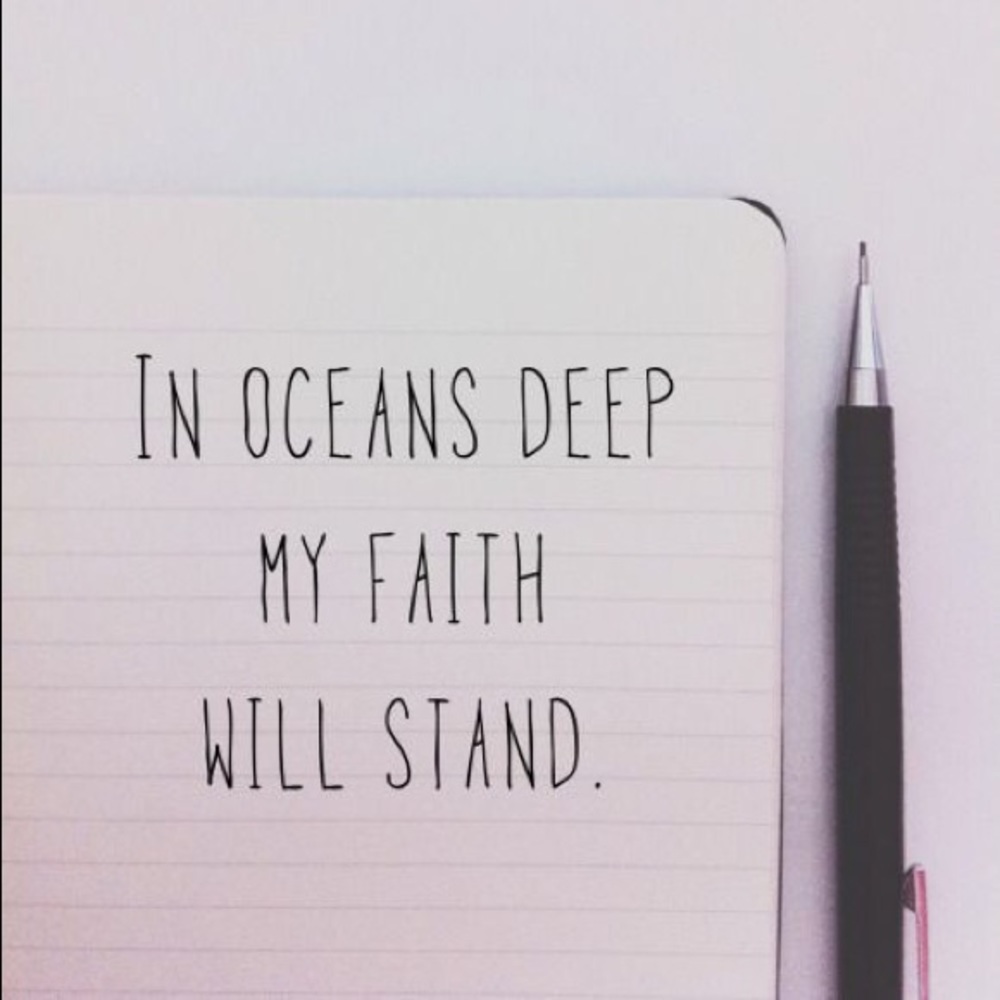 IN OCEANS DEEP
MY FAITH
WILL STAND.